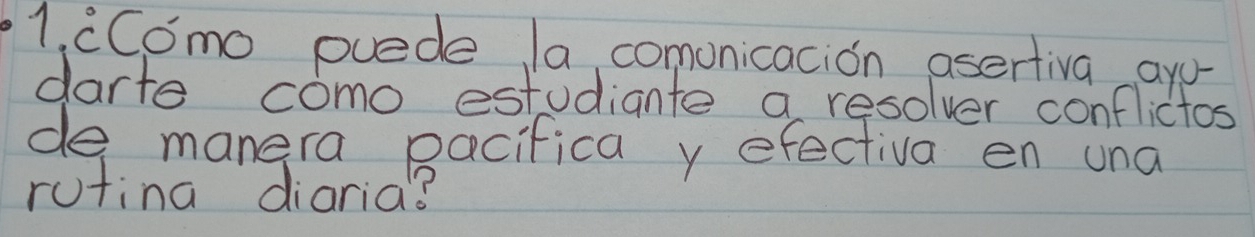 • 1. ¿Cómo puede la comunicación asertiva ayu-
darte como estudiante a resolver conflictos
de manera pacífica y efectiva en una
rutina diaria?